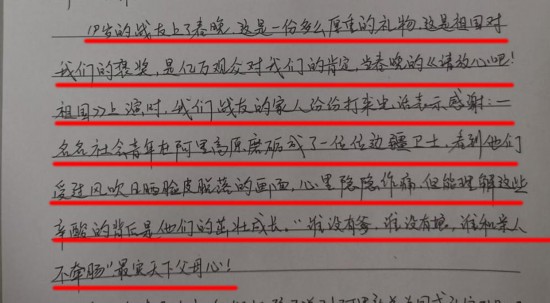 18岁的战友上了春晚，这是一份多么厚重的礼物，这是祖国对
我们的褒奖，是亿万观众对我们的肯定，当春晚的《请放心吧！
祖国》上演时，我们战友的家人纷纷打来电话表示感谢：一
名名社会青年在阿里高原磨砺成了一位位边疆卫士，看到他们
受过风吹日晒脸皮脱落的画面，心里隐隐作痛，但能理解这些
辛酸的背后是他们的茁壮成长。“谁没有爹，谁没有娘，谁和亲人
不牵肠”最实天下父母心！